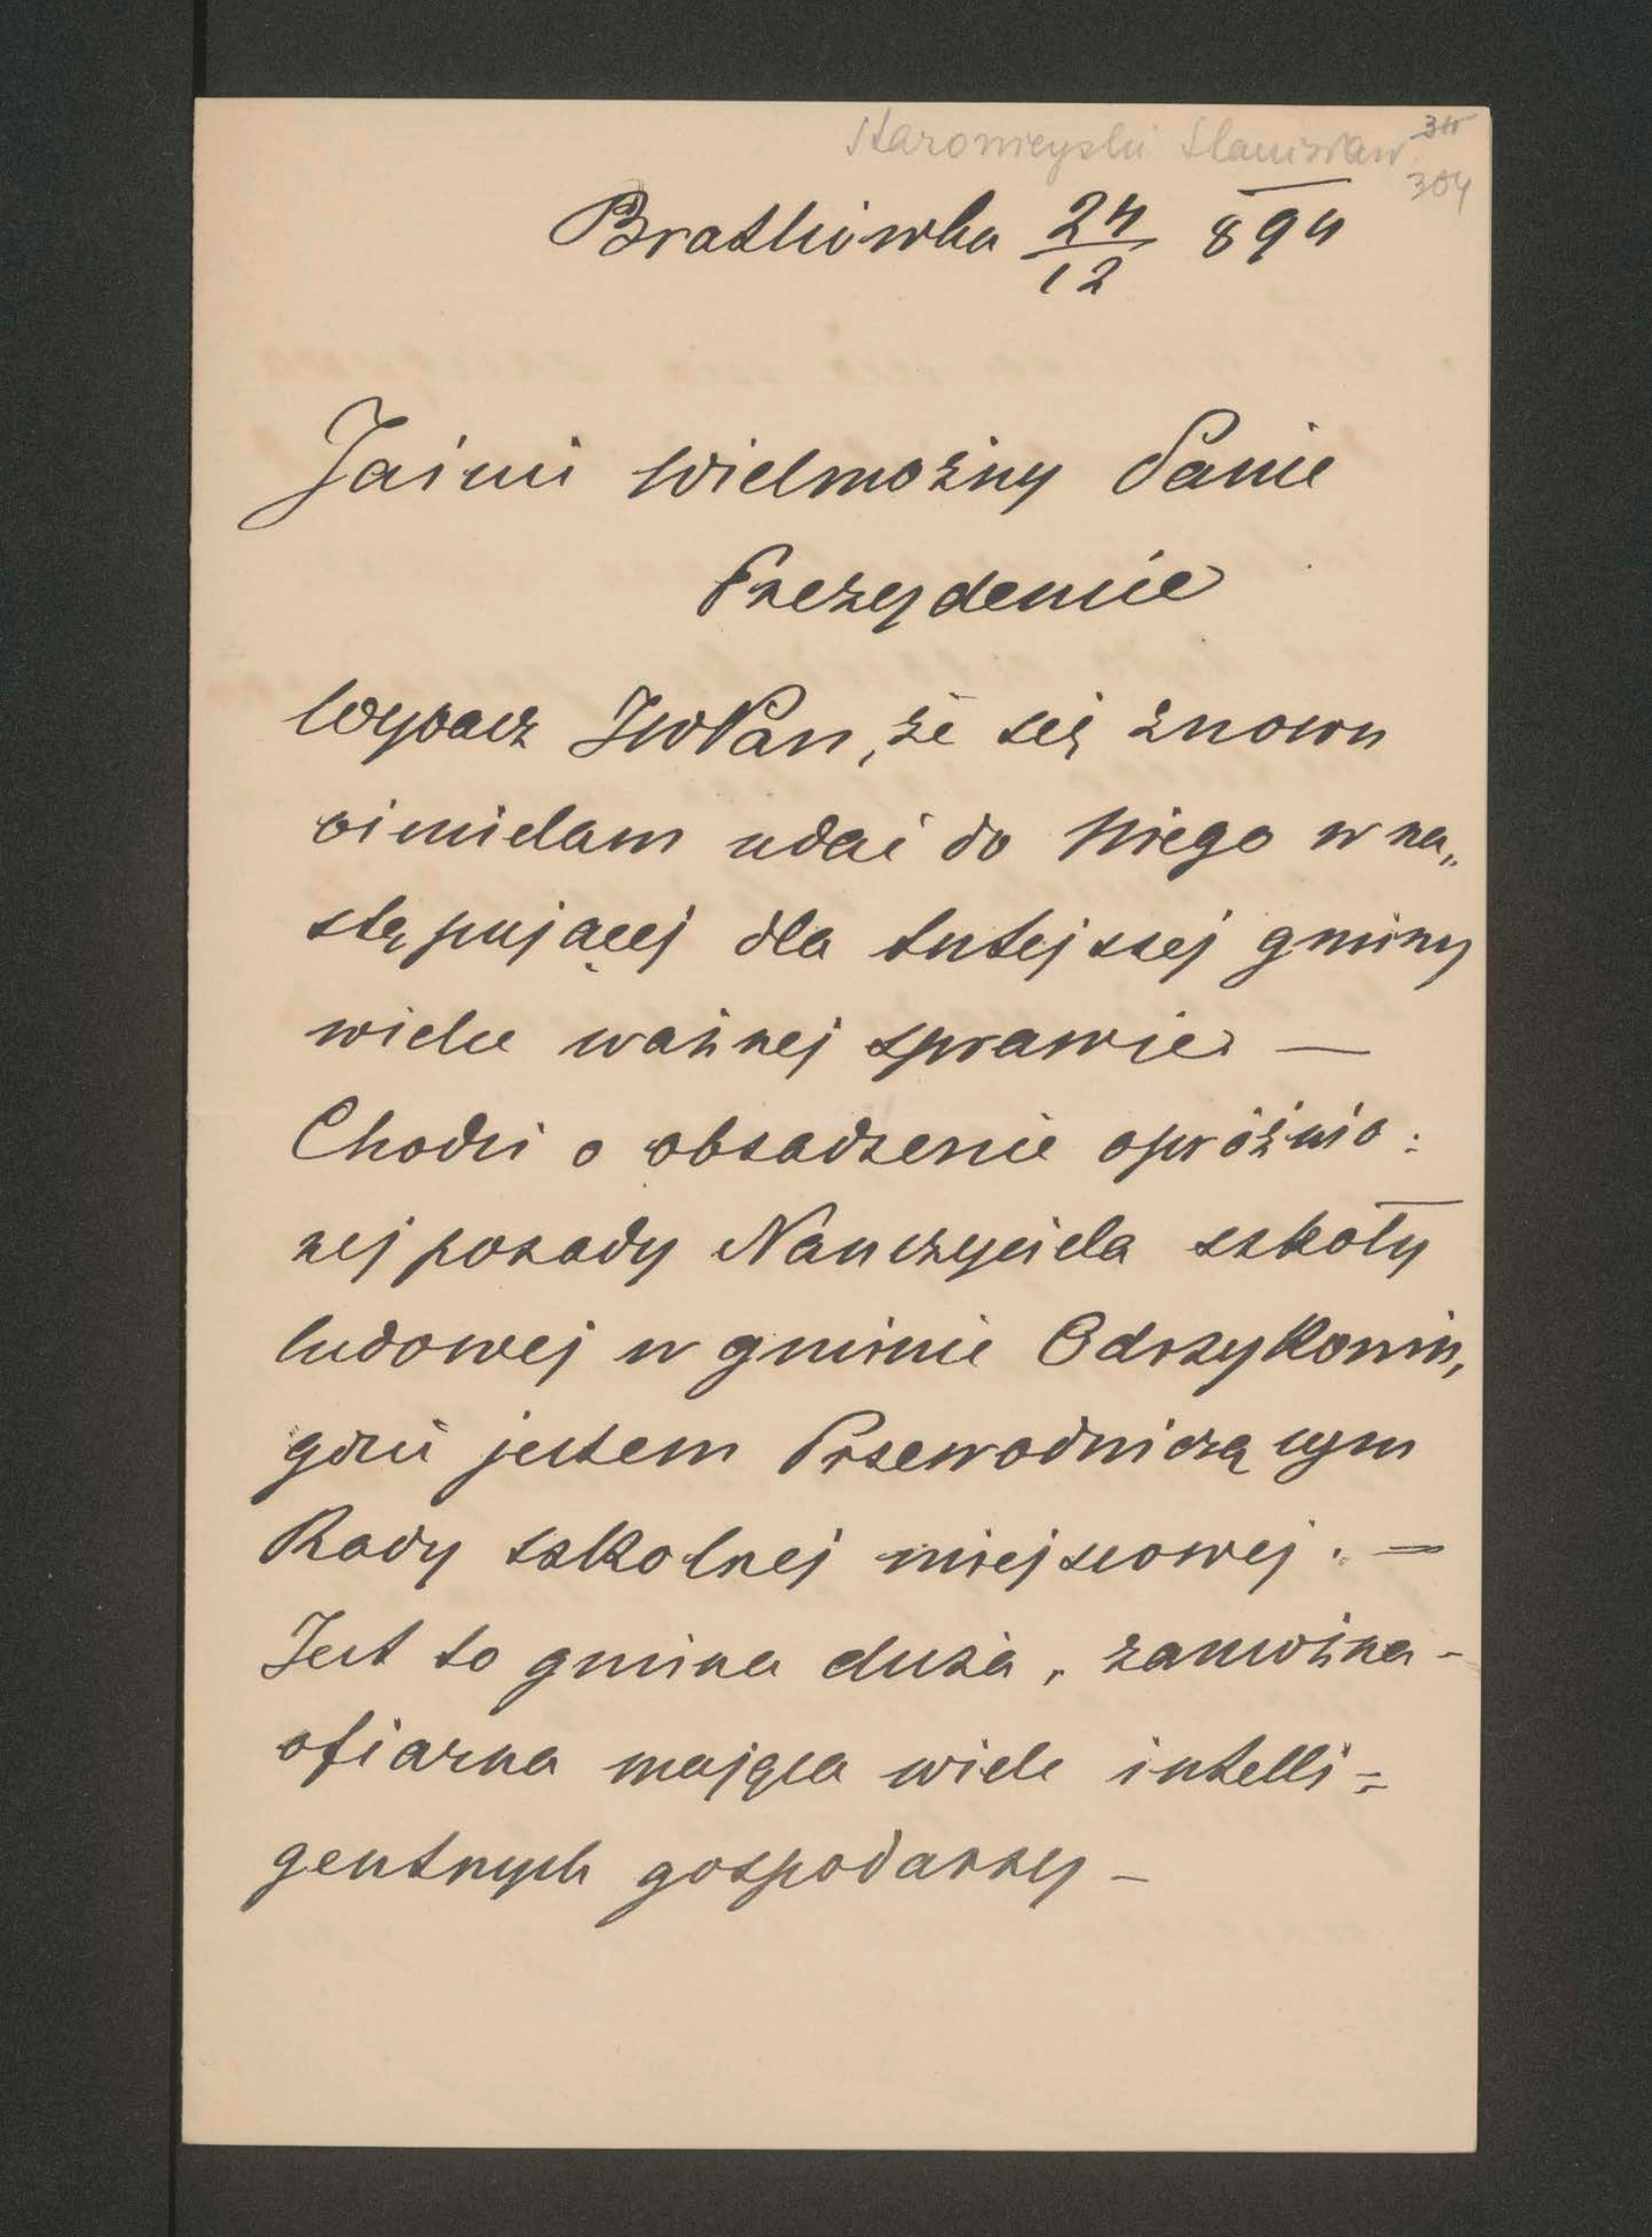 Starowieyski Stanisław 311
304
Bratkówka 24/12 894
Jaśnie Wielmożny Panie
Prezydencie
Wybacz JWPan, że się znowu
ośmielam udać do Niego w na„
stępującej dla tutejszej gminy
wielce ważnej sprawie —
Chodzi o obsadzenie opróżnio:
nej posady Nauczyciela szkoły
ludowej w gminie Odrzykoniu,
gdzie jestem Przewodniczącym
Rady szkolnej miejscowej. —
Jest to gmina duża, zamożna -
ofiarna mająca wiele intelli=
gentnych gospodarzy —